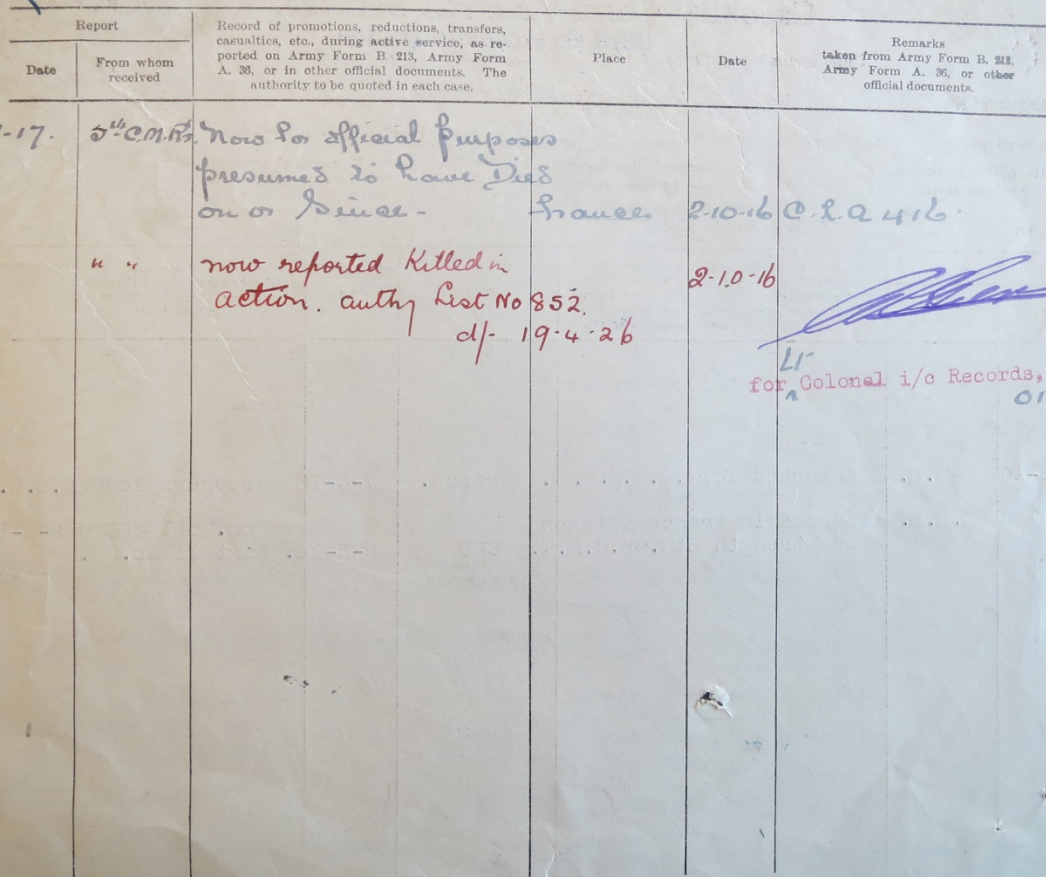 Report
Date
From whom
received
Record of promotions, reductions, transfers,
casualties, etc., during active service, as re-
ported on Army Form B 213, Army Form
A. 36, or in other official documents. The
authority to be quoted in each case.
Place
Date
Remarks
taken from Army Form B. 213,
Army Form A. 36, or other
official documents.
-17. 5th C.M.R's Now for official purposes
presumed to have Died
on or Since - France 2-10-16 C.L.A 416.
" " now reported Killed in
action. authy List No 852. 2-10-16
d/- 19-4-26
Lt
for Colonal i/c Records,